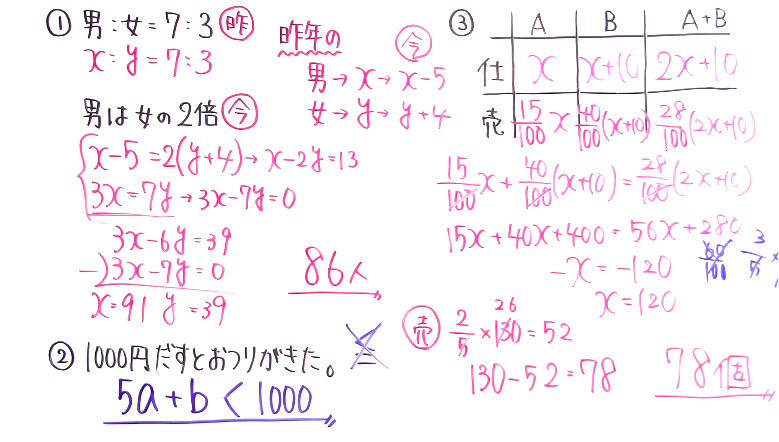 ① 男:女=7:3 昨
x:y=7:3
男は女の2倍 今
x-5=2(y+4)→x-2y=13
3x=7y→3x-7y=0
3x-6y=39
-)3x-7y=0
x=91 y=39
昨年の 今
男→x→x-5
女→y→y+4
86人
② 1000円だすとおつりがきた。
5a+b<1000
③ A B A+B
仕 x x+10 2x+10
売 15/100 x 40/100 (x+10) 28/100 (2x+10)
15/100 x + 40/100 (x+10) = 28/100 (2x+10)
15x+40x+400=56x+280
-x=-120
x=120
60/100 3/5 ×
売 2/5 ×130=52
26
130-52=78
78個